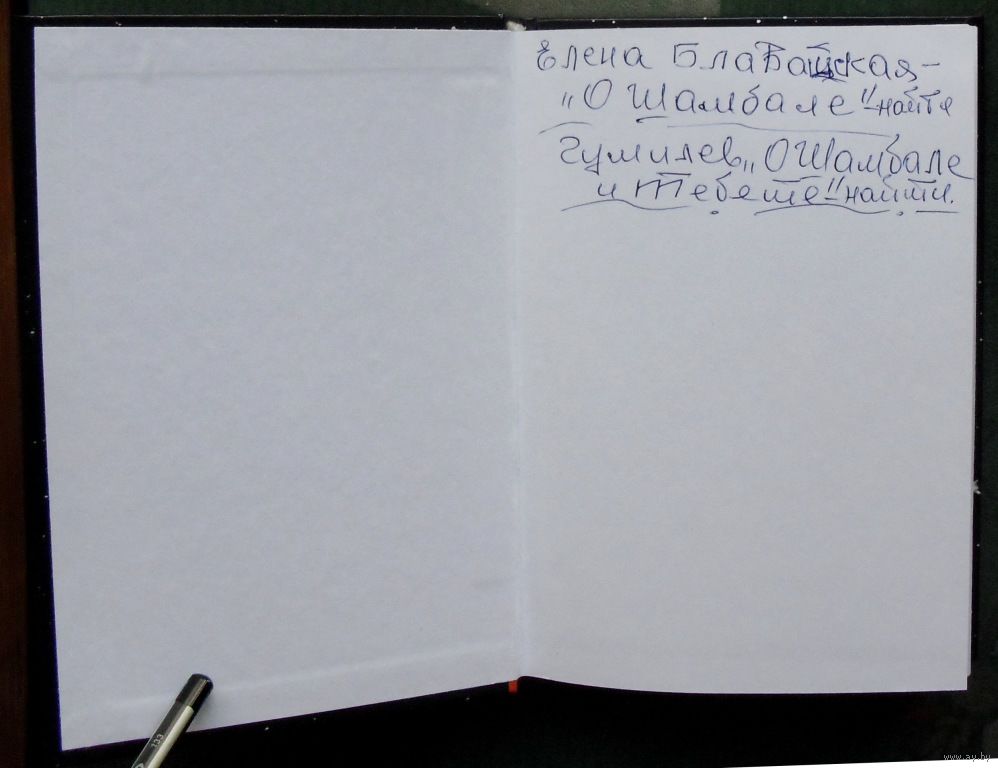 Елена Блаващская –
„О Шамбале" найти
Гумилев „О Шамбале
и Тебете" найти.
133
www.ay.by